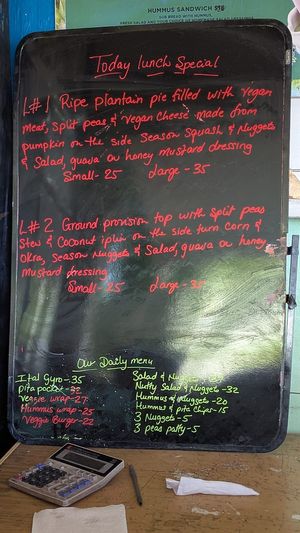 HUMMUS SANDWICH $18
Today lunch Special
L#1 Ripe plantain pie filled with vegan
meat, split peas & vegan cheese made from
pumpkin on the side Season Squash & Nuggets
& Salad, guava or honey mustard dressing
Small- 25 Large - 35
L# 2 Ground provision top with Split peas
Stew & Coconut on the side turn Corn &
Okra, Season Nuggets & Salad, guava or honey
mustard dressing
Small- 25 Large - 35
Our Daily menu
Ital Gyro - 35
Pita pocket -
Veggie wrap - 27
Hummus wrap - 25
Veggie Burger - 22
Salad &
Nutty Salad & Nuggets - 32
Hummus & Nuggets - 20
Hummus & pita Chips - 15
3 Nuggets - 5
3 peas patty - 5